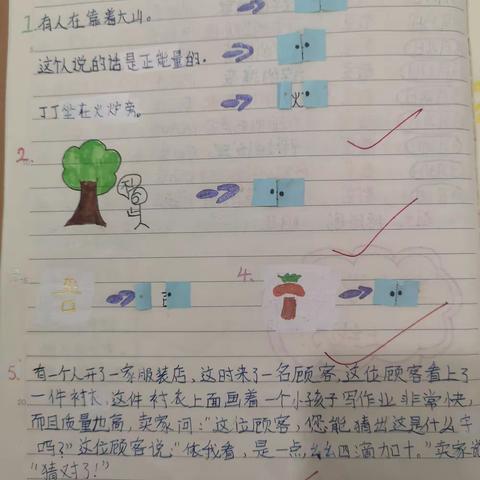 1.有人在靠着大山。
这个人说的话是正能量的。
丁丁坐在火炉旁。
火
2.
4.
5. 有一个人开了一家服装店,这时来了一名顾客,这位顾客看上了
一件衬衣,这件衬衣上面画着一个小孩子写作业非常快,
而且质量也高,卖家问:"这位顾客,您能猜出这是什么字
吗?"这位顾客说:"依我看,是一点幺幺四滴加十。"卖家说
"猜对了!"